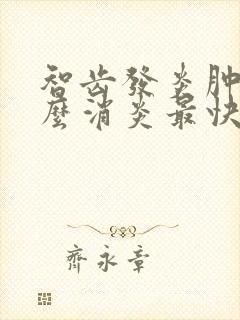 智齿發炎肿
麼消炎最快
齊永章